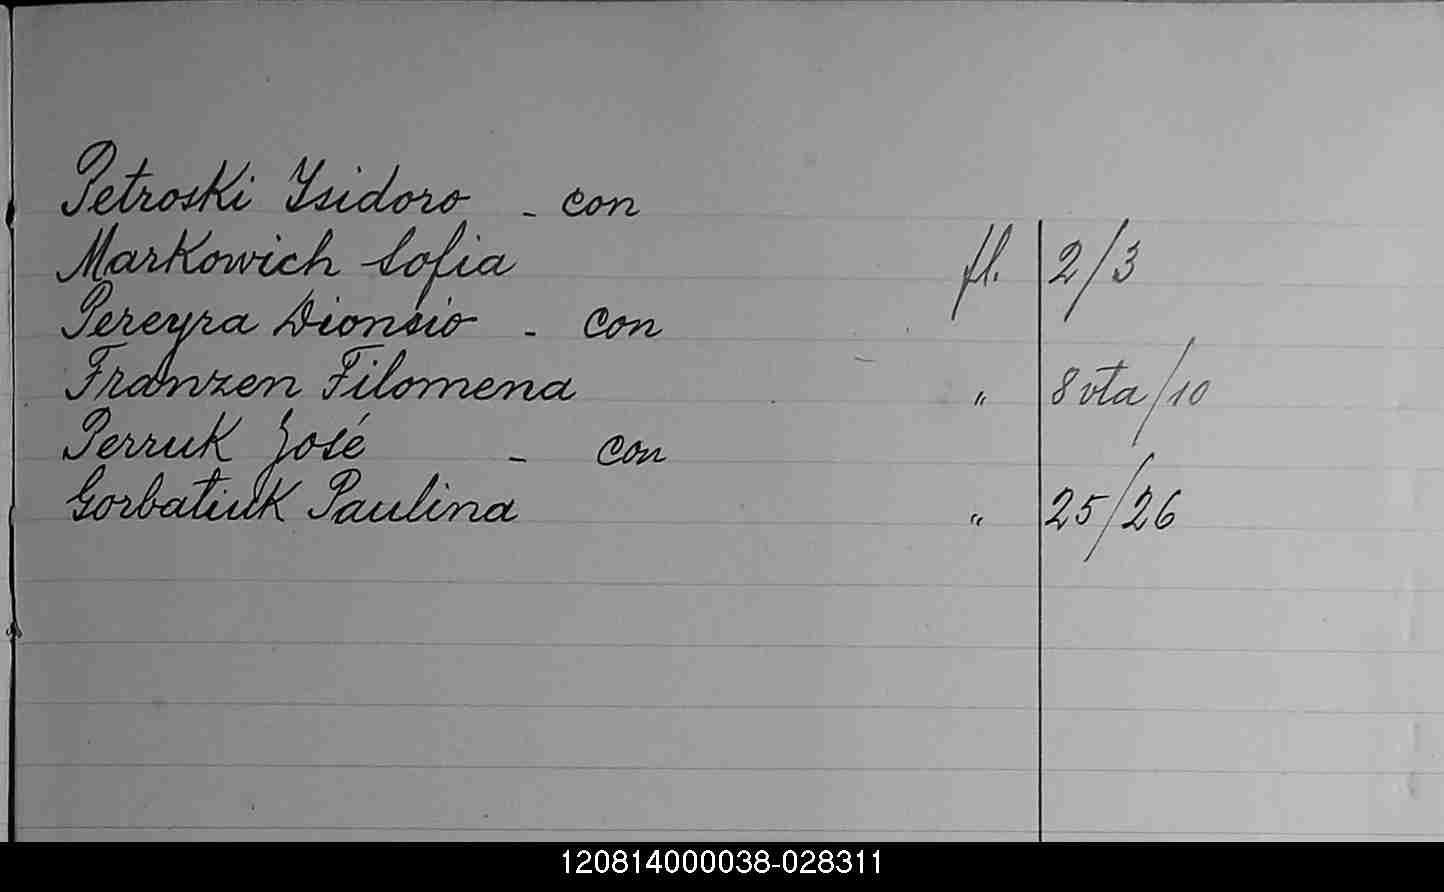 Petroski Ysidoro - con
Markowich Sofia fl. 2/3
Pereyra Dionsio - Con
Franzen Filomena " 8 vta/10
Perruk José - Con
Gorbatiuk Paulina " 25/26
120814000038-028311